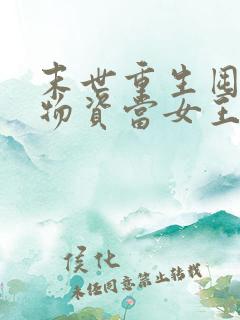 末世重生囤
物资當女王
侯化
未经同意禁止转载